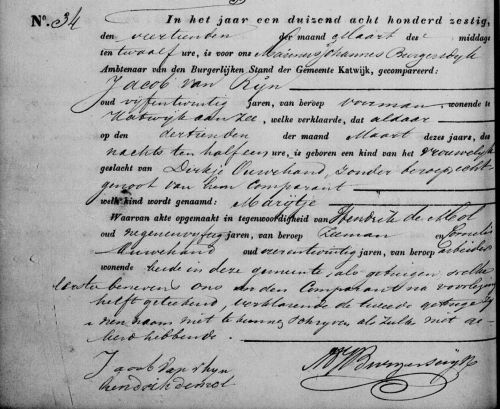 No. 34 In het jaar een duizend acht honderd zestig,
den veertienden der maand Maart des middags
ten twaalf ure, is voor ons Marinus Johannes Burgersdyk
Ambtenaar van den Burgerlijken Stand der Gemeente Katwijk, gecompareerd:
Jacob van Ryn
oud vyfentwintig jaren, van beroep voerman wonende te
Katwijk aan Zee, welke verklaarde, dat aldaar
op den dertienden der maand Maart dezes jaars, des
nachts ten half een ure, is geboren een kind van het vrouwelyk
geslacht van Dirkje Ouwehand, zonder beroep, echt-
genoot van hem Comparant
welk kind wordt genaamd: Marijtje
Waarvan akte opgemaakt in tegenwoordigheid van Hendrik de Mol
oud negenenvyftig jaren, van beroep Zeeman en Cornelis
Ouwehand oud jaren, van beroep arbeider
wonende beide in deze gemeente, als getuigen welke
eerste benevens ons en den Comparant na voorlezing
heeft geteekend, verklarende de tweede getuige zy-
nen naam niet te kunnen schryven als zulks niet ge-
leerd hebbende.
Jacob van rhyn
hendrik de mol
MJBurgersdyk